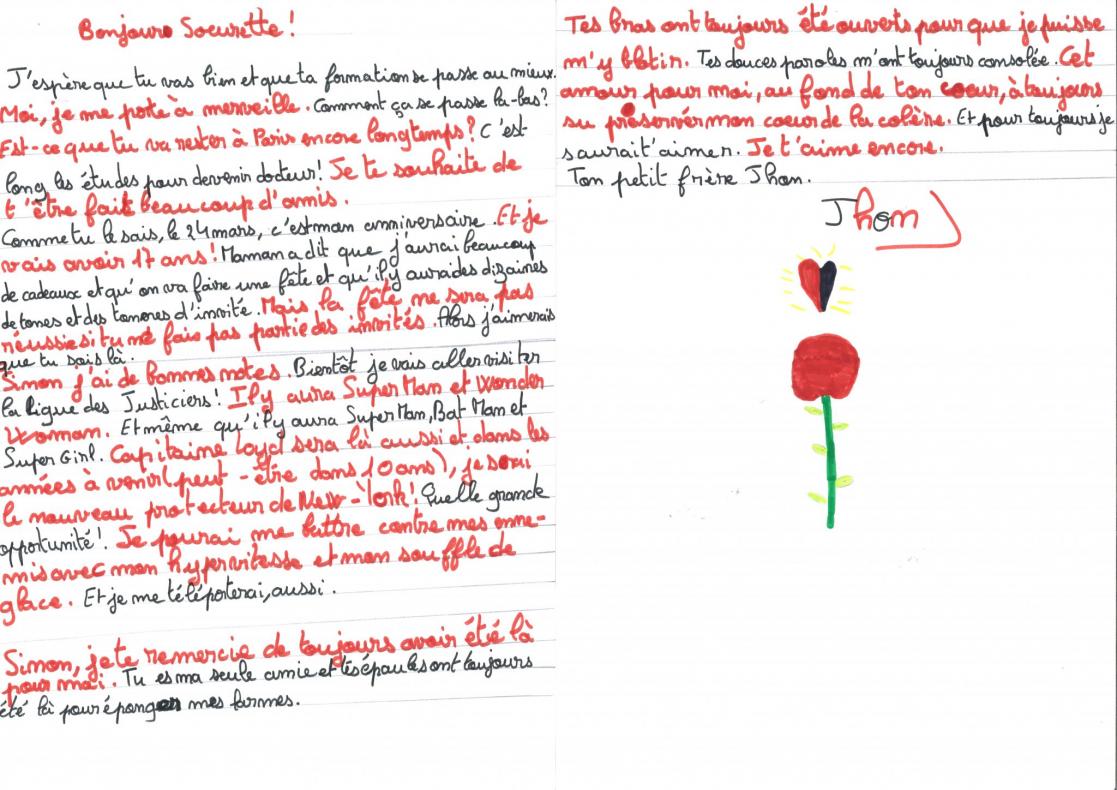 Bonjours Soeurette !
J'espère que tu vas bien et que ta formation se passe au mieux.
Moi, je me porte à merveille. Comment ça se passe là-bas?
Est-ce que tu va rester à Paris encore longtemps? C'est
long les études pour devenir docteur! Je te souhaite de
t'être fait beaucoup d'amis.
Comme tu le sais, le 24 mars, c'est mon anniversaire. Et je
vais avoir 17 ans! Maman a dit que j'aurai beaucoup
de cadeaux et qu'on va faire une fête et qu'il y aura des dizaines
de tones et des tonnes d'invité. Mais la fête ne sera pas
réussie si tu ne fais pas partie des invités. Alors j'aimerais
que tu sois là.
Sinon j'ai de bonnes notes. Bientôt je vais aller visiter
la ligue des Justiciers! Il y aura Super Man et Wonder
Woman. Et même qu'il y aura Super Man, Bat Man et
Super Girl. Capitaine Loyd sera là aussi et dans les
années à venir (peut-être dans 10 ans), je serai
le nouveau protecteur de New-York! Quelle grande
opportunité! Je pourai me battre contre mes enne-
mis avec mon hypervitesse et mon souffle de
glace. Et je me téléporterai, aussi.
Sinon, je te remercie de toujours avoir été là
pour moi. Tu es ma seule amie et tes épaules ont toujours
été là pour éponger mes larmes.
Tes bras ont toujours été ouverts pour que je puisse
m'y blotir. Tes douces paroles m'ont toujours consolée. Cet
amour pour moi, au fond de ton coeur, à toujours
su préservér mon coeur de la colère. Et pour toujours je
saurait t'aimer. Je t'aime encore.
Ton petit frère Jhon.
Jhon